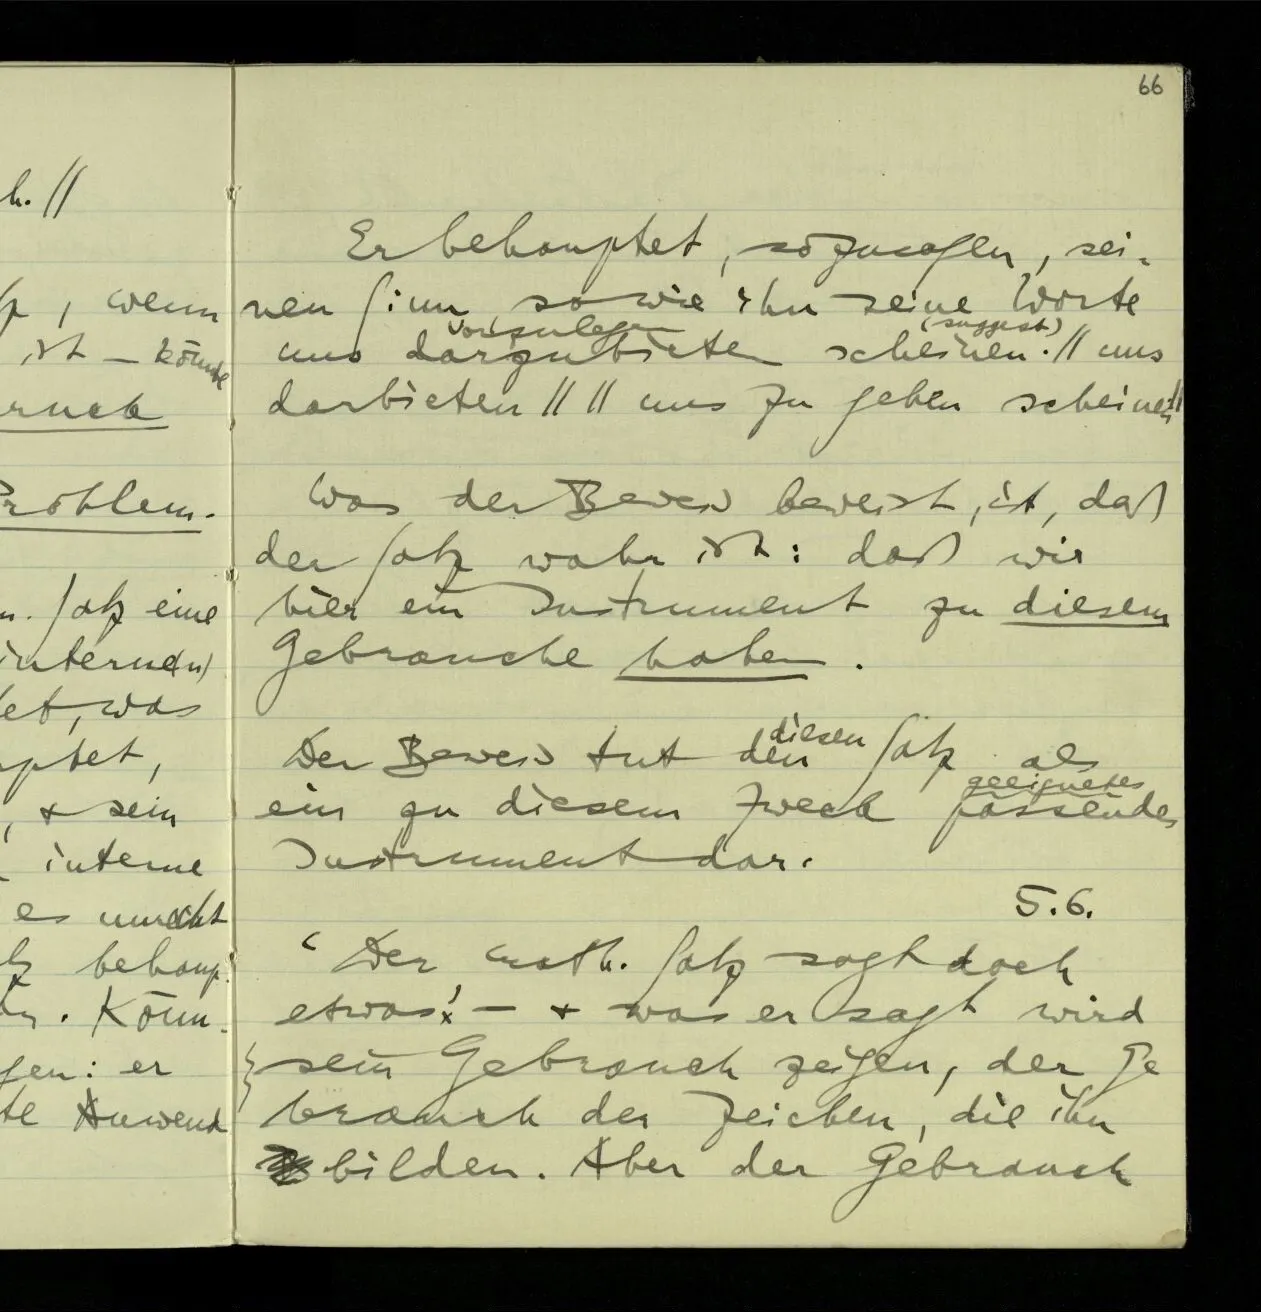 66
h. //
, wenn
ist – könnte
ruck
Problem.
n. Satz eine
interne(n)
et, was
ptet,
, & sein
interne
es unrecht
behaup-
. Könn-
gen: er
te Anwend
Er behauptet, sozusagen, sei-
nen Sinn, so wie ihn seine Worte
vorzulegen (suggest)
uns darzubieten scheinen. // uns
darbieten // // uns zu geben scheinen //
Was der Beweis beweist, ist, daß
der Satz wahr ist: daß wir
hier ein Instrument zu diesem
Gebrauche haben.
diesen
Der Beweis tut den Satz als
geeignetes
ein zu diesem Zweck passendes
Instrument dar.
5.6.
‘Der math. Satz sagt doch
etwas!’ – & was er sagt wird
sein Gebrauch zeigen, der Ge
brauch der Zeichen, die ihn
bilden. Aber der Gebrauch